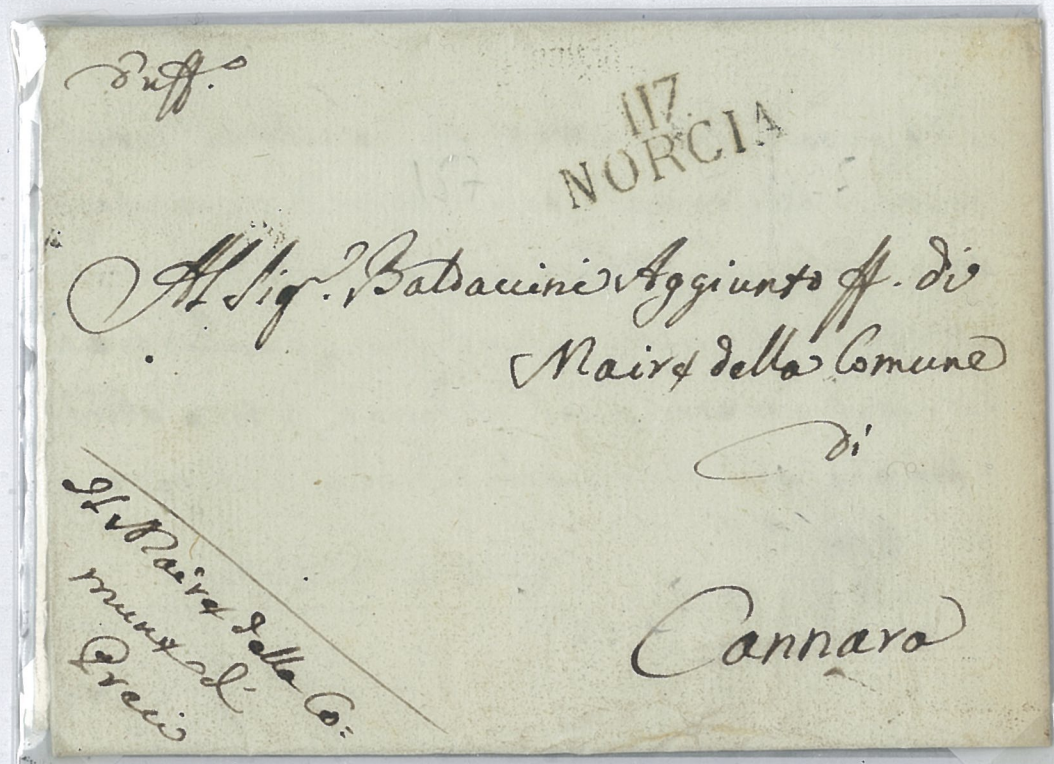 117
NORCIA
Al Sig.r Baldaccini Aggiunto ff. di
Maire della Comune
di
Cannara
Il Maire della Co:
mune di